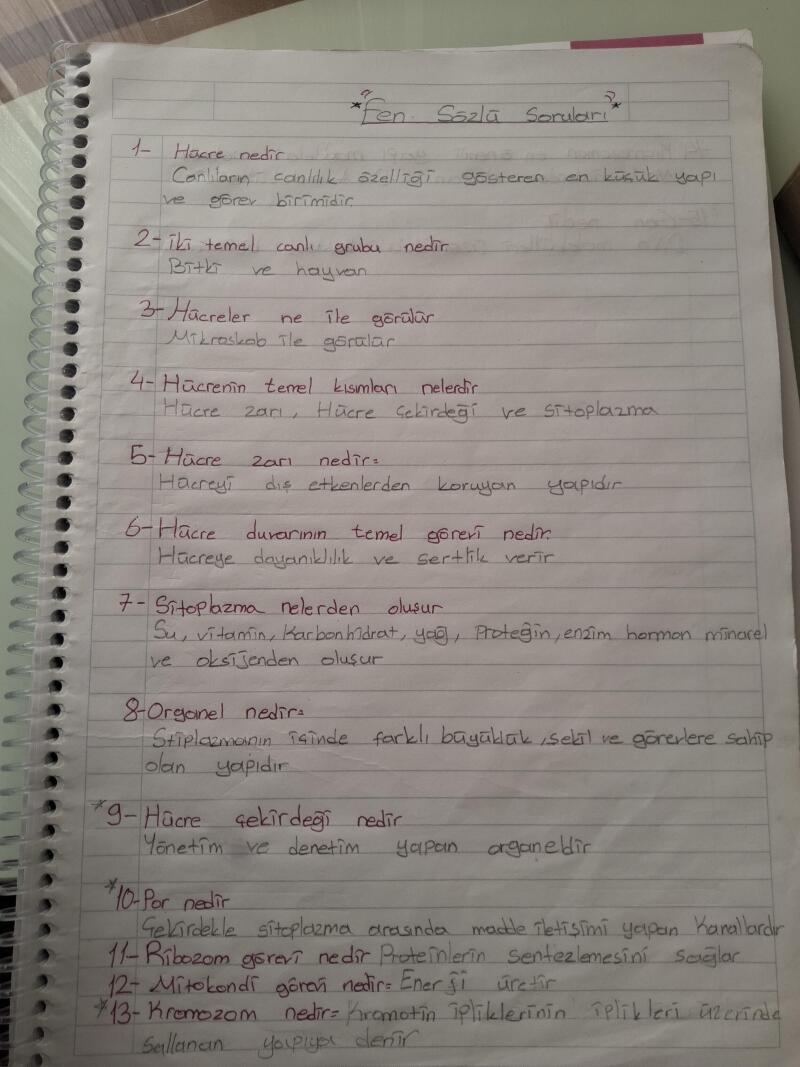 *Fen Sözlü Soruları*
1- Hücre nedir
Canlıların canlılık özelliği gösteren en küçük yapı
ve görev birimidir.
2- İki temel canlı grubu nedir
Bitki ve hayvan
3- Hücreler ne ile görülür
Mikroskob ile görülür
4- Hücrenin temel kısımları nelerdir
Hücre zarı, Hücre çekirdeği ve sitoplazma
5- Hücre zarı nedir=
Hücreyi dış etkenlerden koruyan yapıdır
6- Hücre duvarının temel görevi nedir.
Hücreye dayanıklılık ve sertlik verir
7- Sitoplazma nelerden oluşur
Su, vitamin, Karbonhidrat, yağ, Proteğin, enzim hormon minarel
ve oksijenden oluşur
8- Organel nedir=
Stiplazmanın içinde farklı büyüklük, şekil ve görevlere sahip
olan yapıdır
*9- Hücre çekirdeği nedir
Yönetim ve denetim yapan organeldir
*10- Por nedir
Çekirdekle sitoplazma arasında madde iletişimi yapan Kanallardır
11- Ribozom görevi nedir Proteinlerin sentezlemesini sağlar
12- Mitokondi görevi nedir= Enerji üretir
*13- Kromozom nedir= Kromotin ipliklerinin iplikleri üzerinde
sallanan yapıya denir